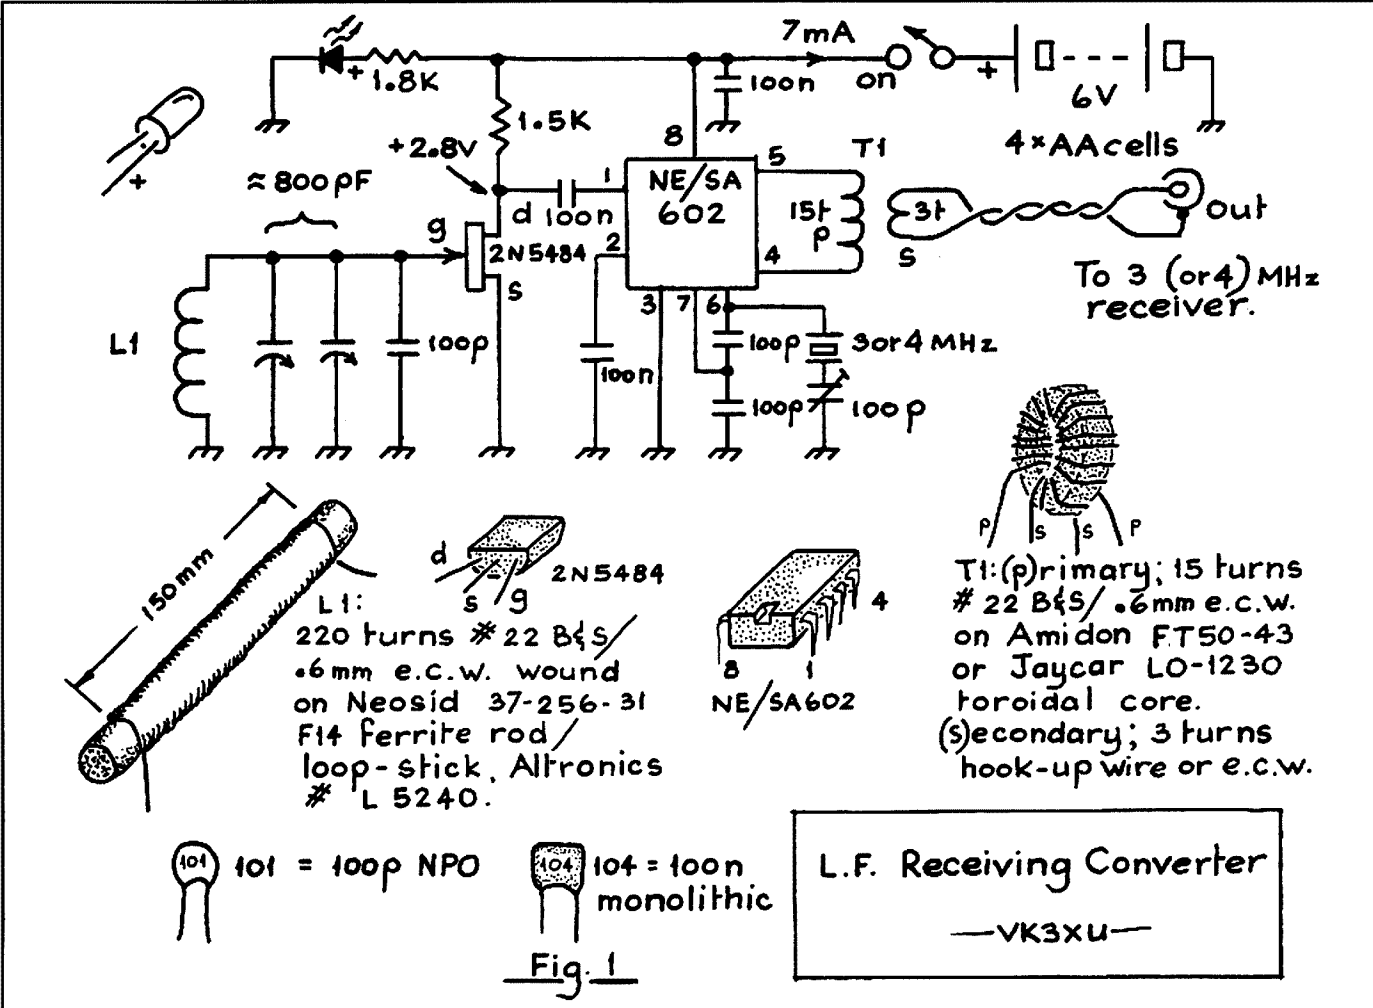 7mA
+ 1.8K
100n
on
+
6V
4×AA cells
1.5K
+2.8V
8
5
T1
+
≈800pF
1
NE/SA
602
15t
p
3t
s
out
d 100n
g
2
2N5484
4
s
3 7 6
To 3 (or 4) MHz
receiver.
L1
100p
100n
100p
3 or 4 MHz
100p
100p
150mm
d
s
g
2N5484
L1:
220 turns # 22 B&S/
.6mm e.c.w. wound
on Neosid 37-256-31
F14 ferrite rod/
loop-stick, Altronics
# L 5240.
4
8
1
NE/SA602
p s s p
T1:(p)rimary; 15 turns
# 22 B&S/ .6mm e.c.w.
on Amidon FT50-43
or Jaycar LO-1230
toroidal core.
(s)econdary; 3 turns
hook-up wire or e.c.w.
101
101 = 100p NPO
104
104 = 100n
monolithic
Fig. 1
L.F. Receiving Converter
—VK3XU—